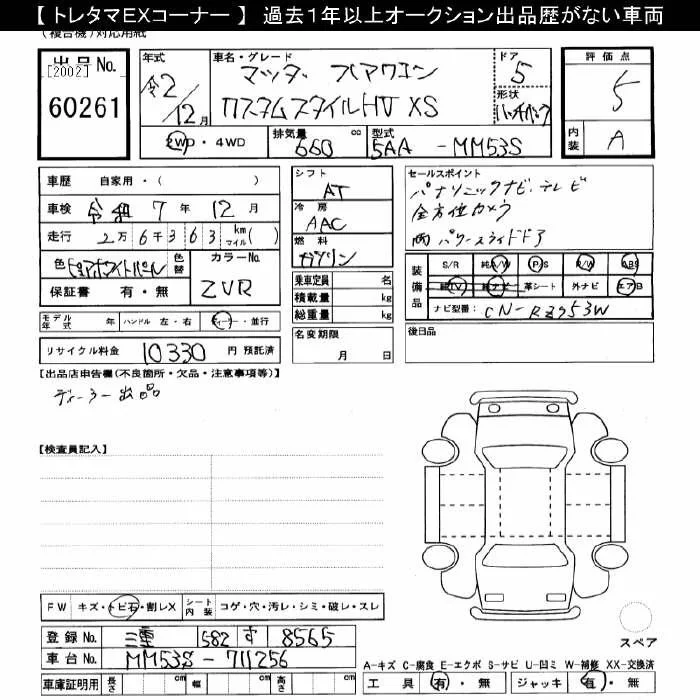 【 トレタマEXコーナー 】 過去１年以上オークション出品歴がない車両
(複合機)対応用紙
出品 No. 年式 車名・グレード ドア 評価点
[2002] 令2 マツダ フレアワゴン 5 5
60261 12月 カスタムスタイルHV XS 形状 ハッチバック
2WD・4WD 排気量 660 cc 型式 5AA-MM53S 内装 A
車歴 自家用・( ) シフト AT セールスポイント
車検 令和 7年 12月 冷房 AAC パナソニックナビ、テレビ
走行 2万6千363 km マイル( ) 燃料 ガソリン 全方位カメラ
色 ピュアホワイトパール 色替 カラーNo. ZVR 両パワースライドドア
保証書 有・無 乗車定員 名 装備品 S/R 純A/W P/S P/W ABS
積載量 kg 純TV 純ナビ 革シート 外ナビ エアB
モデル年式 年 ハンドル 左・右 ディーラー・並行 総重量 kg ナビ型番: CN-RZ753W
リサイクル料金 10330 円 預託済 名変期限 月 日 後日品
【出品店申告欄(不良箇所・欠品・注意事項等)】
ディーラー出品
【検査員記入】
FW キズ・トビ石・割レX シート内装 コゲ・穴・汚レ・シミ・破レ・スレ
登録 No. 三重 582 す 8565 スペア
車台 No. MM53S-711256 A-キズ C-腐食 E-エクボ S-サビ U-凹ミ W-補修 XX-交換済
車庫証明用 長さ cm 幅 cm 高さ cm 工具 有・無 ジャッキ 有・無